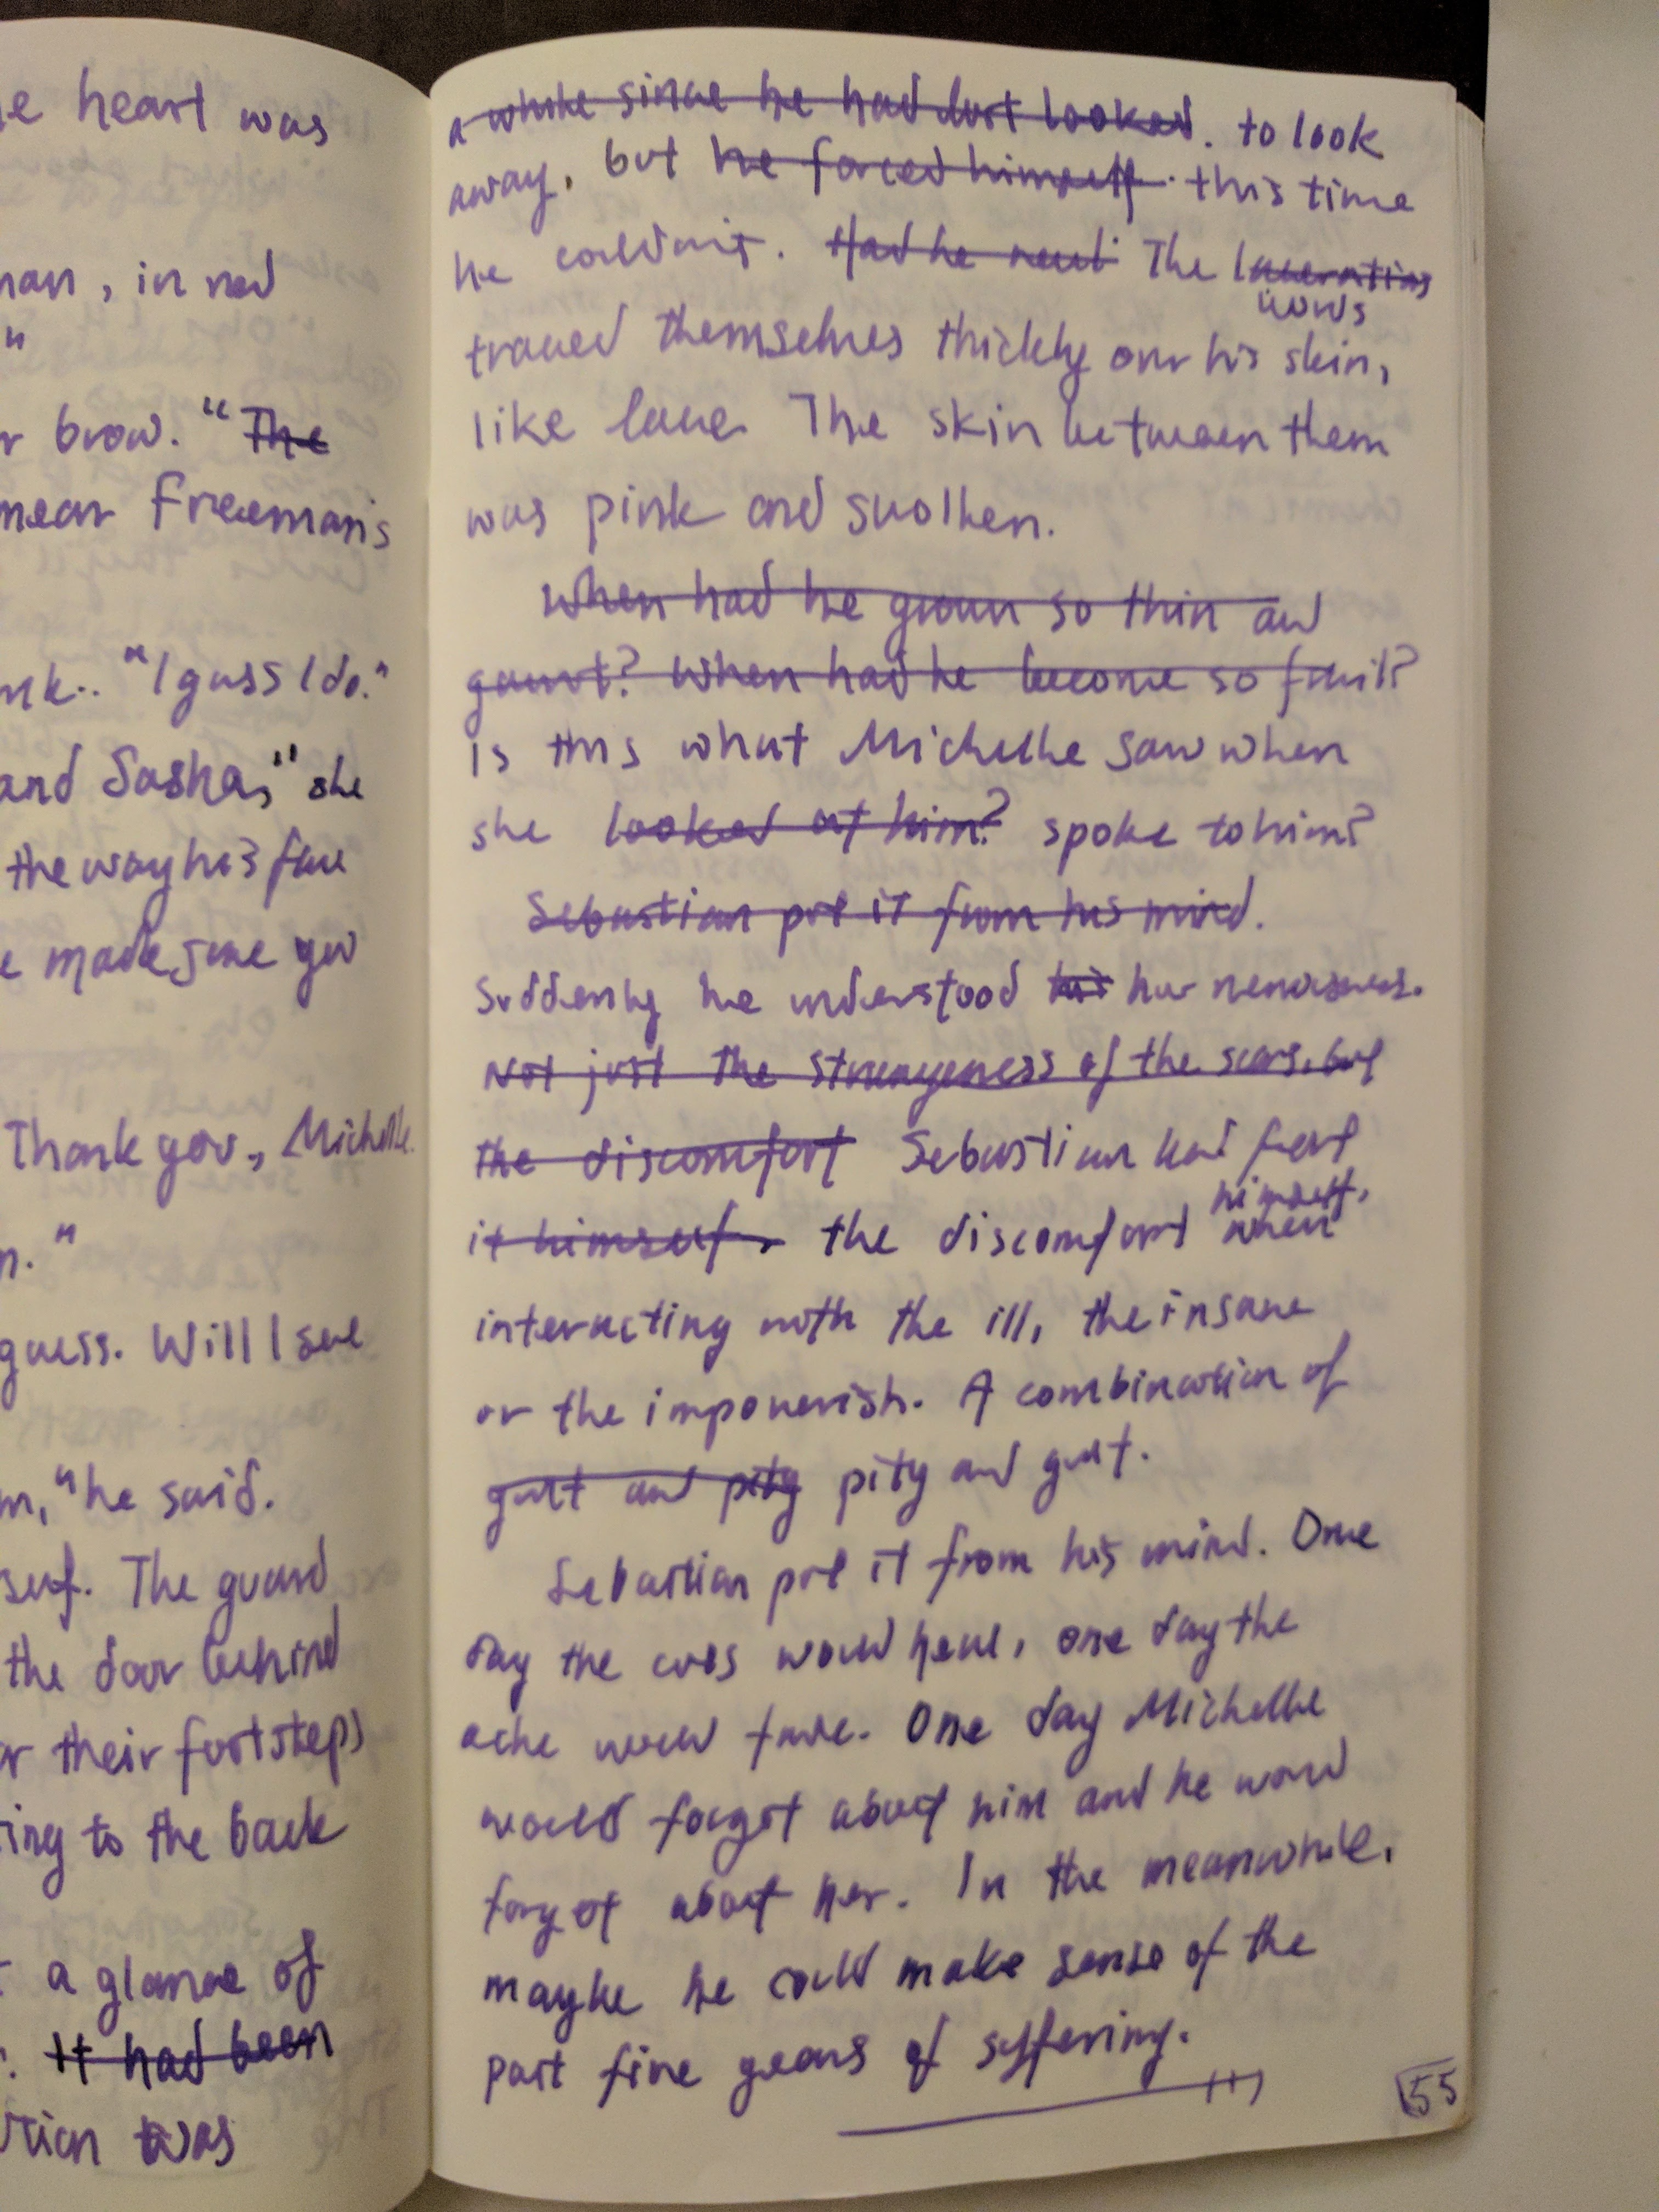 e heart was
man, in red
"
r brow. "The
mean Freeman's
nk.. "I guess I do."
and Sasha," she
the way his face
e made, june
Thank you, Michelle.
n."
guess. Will I see
m," he said.
self. The guard
the door behind
r their footsteps
ing to the back
a glance of
. It had been
was
a while since he had last looked. to look
away, but he forced himself. this time
he couldn't. Had he The lacerations
traced themselves thickly over his skin,
like lace. The skin between them
was pink and swollen.
When had he grown so thin and
gaunt? When had he become so frail?
Is this what Michelle saw when
she looked at him? spoke to him?
Sebastian put it from his mind.
Suddenly he understood his her nervousness.
Not just the strangeness of the scars, but
the discomfort Sebastian had felt
himself,
it himself, the discomfort when
interacting with the ill, the insane
or the impoverish. A combination of
guilt and pity pity and guilt.
Sebastian put it from his mind. One
day the cuts would heal, one day the
ache would fade. One day Michelle
would forget about him and he would
forget about her. In the meanwhile,
maybe he could make sense of the
past five years of suffering.
155